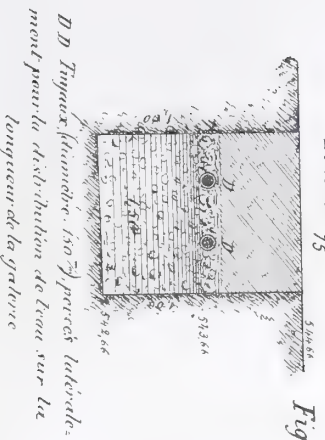 Fig
75
544,66
D
D
543,66
1,50
1,50
542,66
D D Tuyaux (diamètre 150 m/m) percés latérale=
ment pour la distribution de l'eau sur la
longueur de la galerie